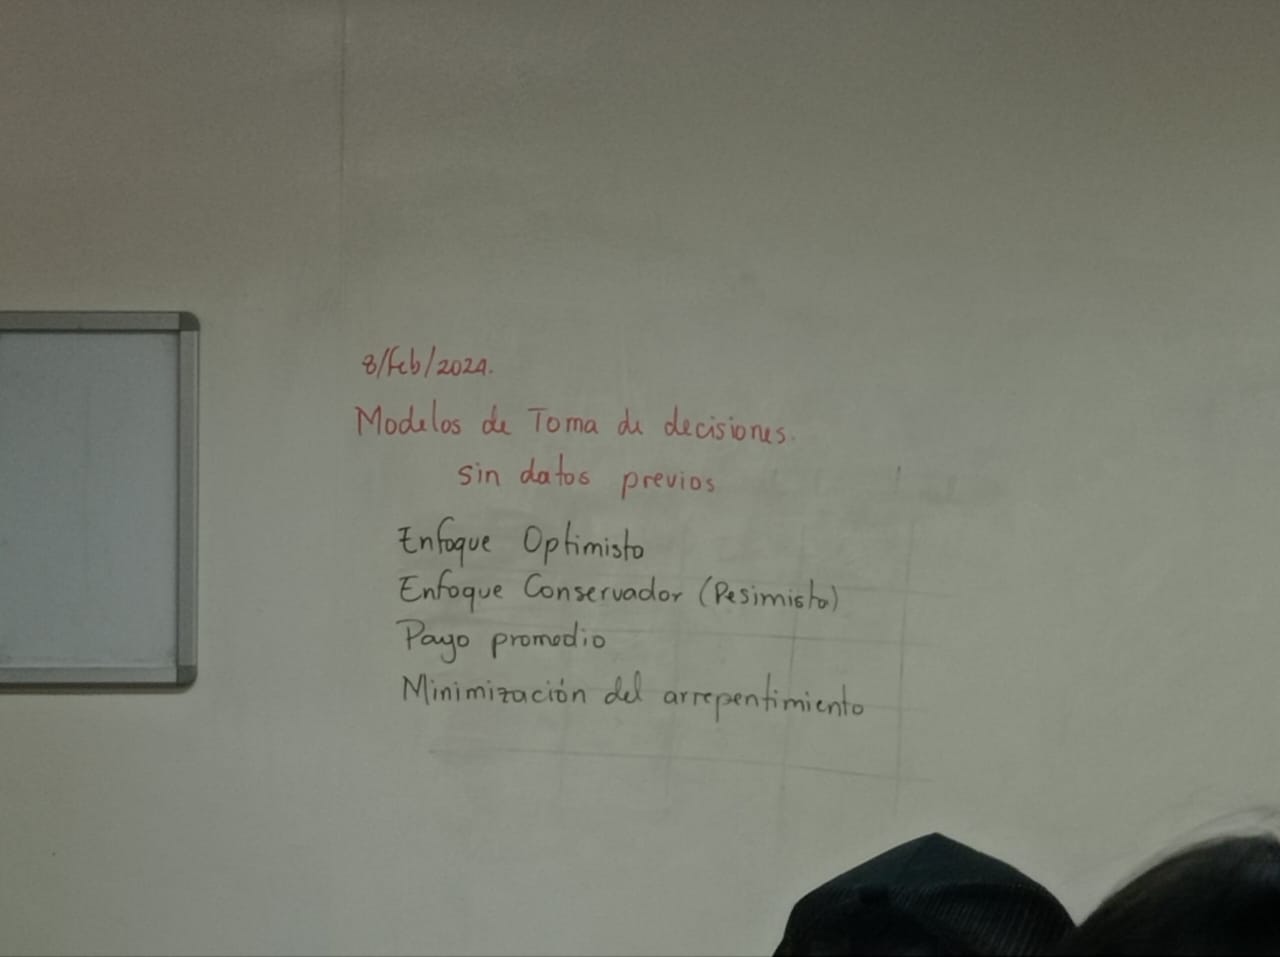 8/feb/2024.
Modelos de Toma de decisiones.
sin datos previos
Enfoque Optimista
Enfoque Conservador (Pesimista)
Pago promedio
Minimización del arrepentimiento